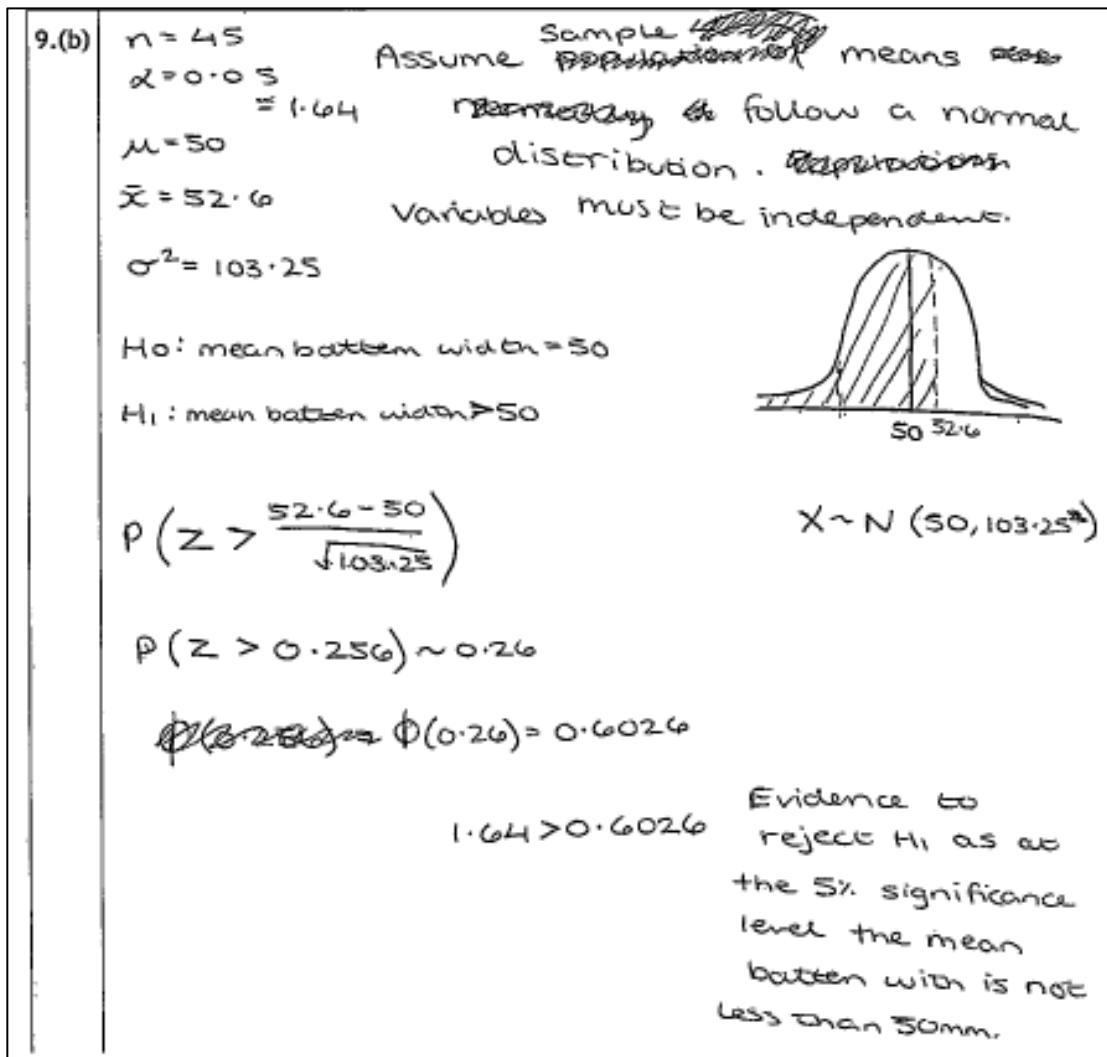 9.(b)
n = 45
α = 0.05
= 1.64
μ = 50
x̄ = 52.6
σ² = 103.25
Assume sample means
follow a normal
distribution.
Variables must be independent.
H₀: mean battem width = 50
H₁: mean batten width > 50
50 52.6
P(Z > (52.6 - 50)/√103.25)
X ~ N (50, 103.25)
P(Z > 0.256) ~ 0.26
ϕ(0.26) = 0.6026
1.64 > 0.6026
Evidence to
reject H₁ as at
the 5% significance
level the mean
batten with is not
less than 50mm.